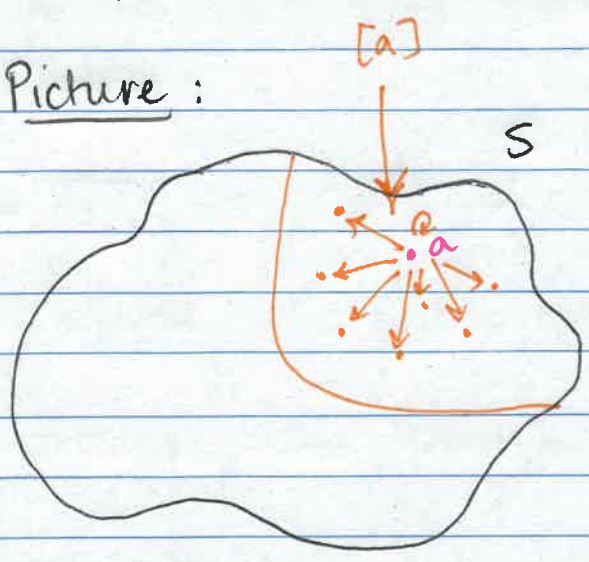 [a]
Picture :
S
R
a